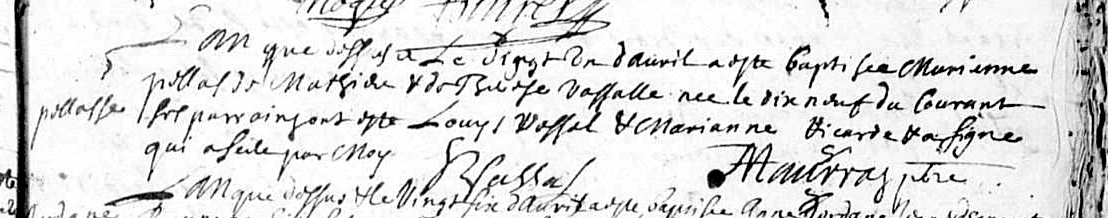 L'an que dessus et le vingt un d'auril a este baptisee Marienne
pellasse
pellas de Mathieu & de Therese Vassalle nee le dix neuf du Courant
ses parrains ont este Louys Vassal & Marianne Ricarde & a signe
qui a sceu par Moy
Vassal
ptre
L'an que dessus & le Vingt six d'auril a este baptisee Anne